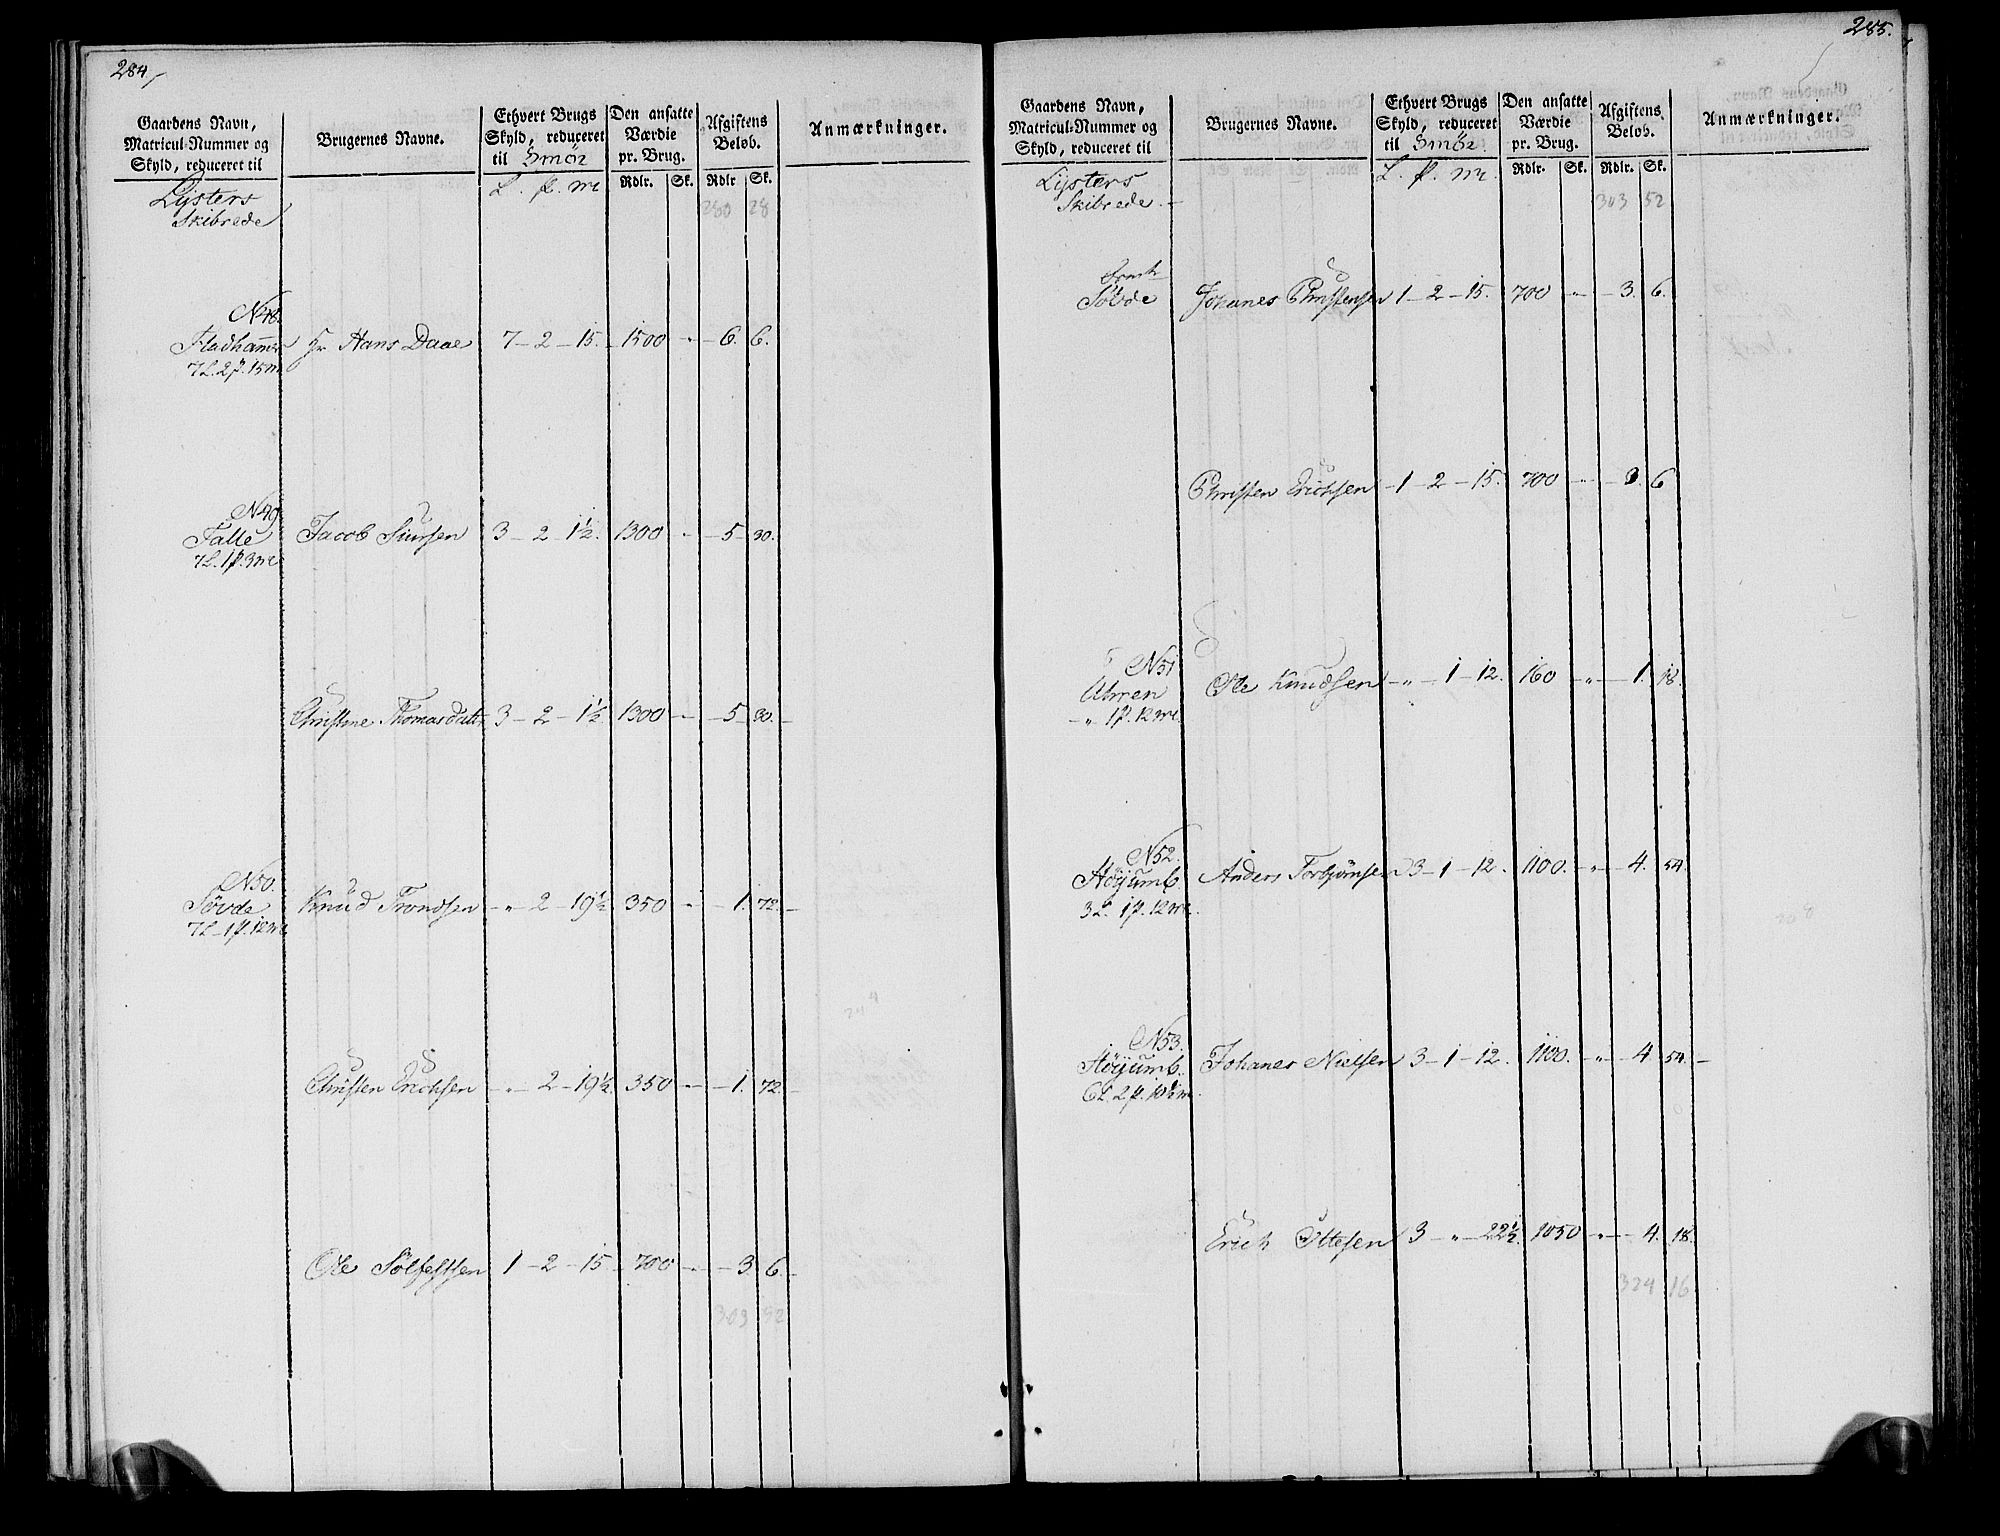 284
Gaardens Navn, Matricul-Nummer og Skyld, reduceret til | Brugernes Navne. | Ethvert Brugs Skyld, reduceret til Smör | Den ansatte Værdie pr. Brug. | Afgiftens Beløb. | Anmærkninger.
L. p. mr | Rdlr. | Sk. | Rdlr | Sk.
Lysters 280 28
Skibrede
N48.
Fladhamer Hr Hans Daae 7 - 2 - 15. 1500 " - 6. 6.
7L. 2p. 15mr
N49
Talle Jacob Siursen 3 - 2 - 1½. 1300 " - 5 - 30.
7L. 1p. 3mr
Christine Thomasdatter 3 - 2 - 1½ 1300 - 5 - 30. -
N50.
Sövde Knud Trondsen - " - 2 - 19½ 350 " - 1. 72. -
7L - 1p. 12mr
Christen Erichsen - " - 2 - 19½ 350 - 1. 72. -
Ole Sölfestsen 1 - 2 - 15 - 700 - 3. 6. -
303 52
285.
Gaardens Navn, Matricul-Nummer og Skyld, reduceret til | Brugernes Navne. | Ethvert Brugs Skyld, reduceret til Smör | Den ansatte Værdie pr. Brug. | Afgiftens Beløb. | Anmærkninger.
L. p. mr. | Rdlr. | Sk. | Rdlr. | Sk.
Lysters 303 52
Skibrede. -
Sövde Johanes Christensen 1 - 2 - 15. 700 " - 3. 6.
Christen Erichsen - 1 - 2 - 15. 700 - " - 3. 6
N51
Ahren Ole Knudsen - " - 1 - 12. 160 " - 1. 18.
- " 1p. 12mr.
N52.
Höyumb Anders Torbjörnsen 3 - 1 - 12. 1100. - " - 4. 54.
3L. 1p. 12mr.
N53.
Höyumb. Johanes Nielsen 3 - 1 - 12. 1100. - " - 4 54. -
6L. 2p. 10½mr.
Erich Ottesen 3 - " - 22½. 1050 - " - 4. 18.
324 16